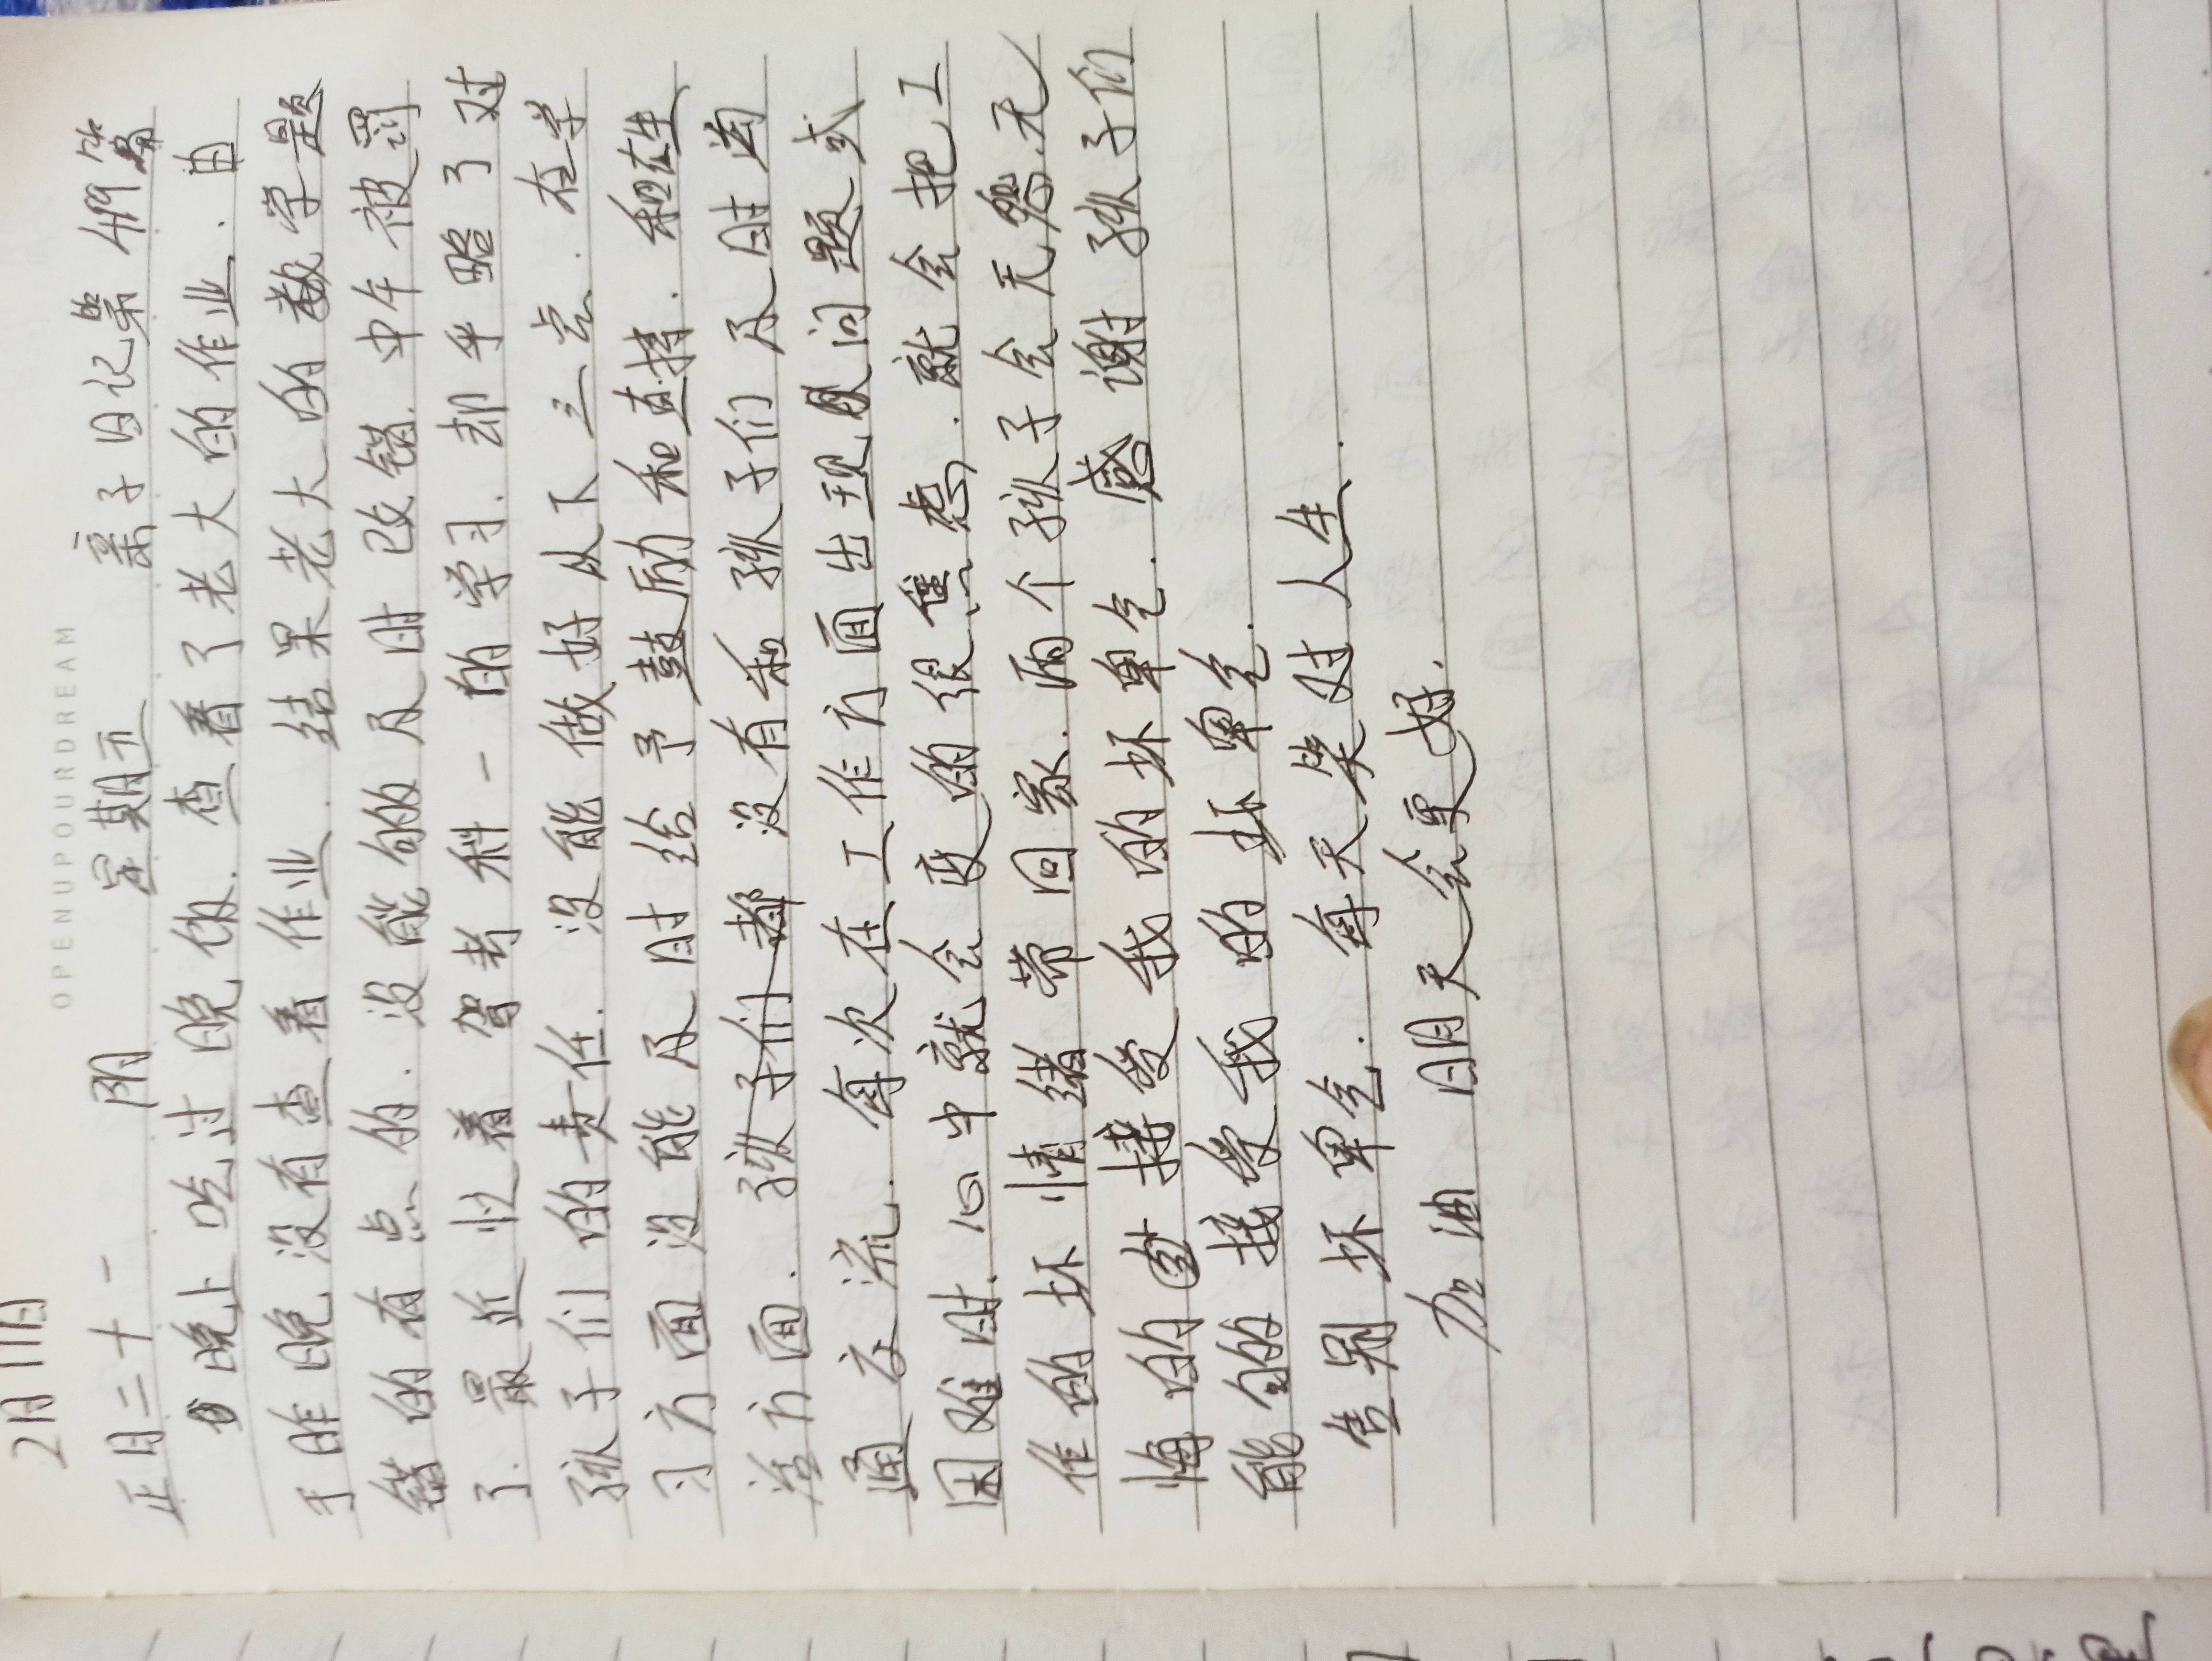 OPENUPOURDREAM
2月11日
正月二十一 阴 星期五 亲子日记第499篇
晚上吃过晚饭.查看了老大的作业.由
于昨晚没有查看作业.结果老大的数学题
错的有点的.没能够的及时改错.中午被罚
了.最近忙着驾考科一的学习.却乎略了对
孩子们的责任.没能做好从下三点.在学
习方面没能及时给予鼓励和支持.和在生
活方面.孩子们都没有和孩子们及时沟
通交流.每次在工作方面出现问题或
困难时.心中就会变的很焦虑.就会把工
作的坏情绪带回家.两个孩子会无怨.无
悔的的接受我的坏卑气.感谢孩子们
能够的接受我的坏卑气.
告别坏卑气.每天笑对人生.
加油明天会更好.